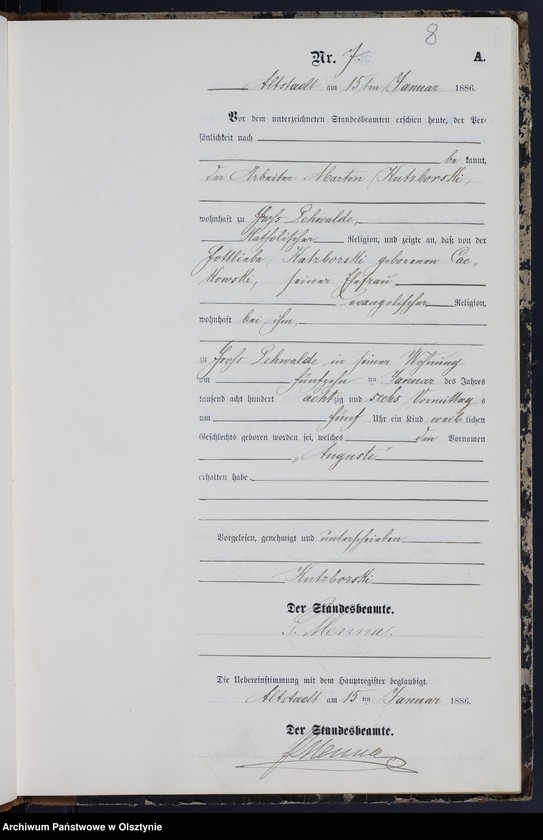 8
Nr. 7. A.
Altstadt am 15 ten Januar 1886.
Vor dem unterzeichneten Standesbeamten erschien heute, der Per-
sönlichkeit nach
be kannt,
der Arbeiter Martin Kutzborski,
wohnhaft zu Groß Lehwalde,
Katholischer Religion, und zeigte an, daß von der
Gottliebe Kutzborski geborenen Cac-
kowski, seiner Ehefrau
evangelischer Religion,
wohnhaft bei ihm,
zu Groß Lehwalde in seiner Wohnung
am fünfzehn ten Januar des Jahres
tausend acht hundert achtzig und sechs Vormittags
um fünf Uhr ein Kind weib lichen
Geschlechts geboren worden sei, welches den Vornamen
„Auguste“
erhalten habe.
Vorgelesen, genehmigt und unterschrieben
Kutzborski
Der Standesbeamte.
Menna.
Die Uebereinstimmung mit dem Hauptregister beglaubigt.
Altstadt am 15 ten Januar 1886.
Der Standesbeamte.
Menna
Archiwum Państwowe w Olsztynie